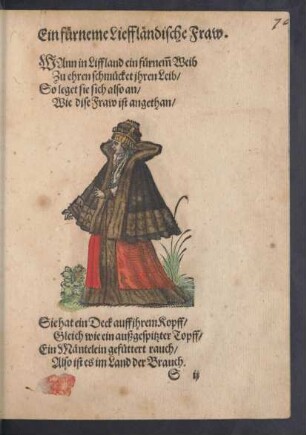 Ein fürneme Lieffländische Fraw.
WAnn in Liffland ein fürnem̃ Weib
Zu ehren schmücket jhren Leib/
So leget sie sich also an/
Wie dise Fraw ist angethan/
Sie hat ein Deck auff ihrem Kopff/
Gleich wie ein außgespitzter Topff/
Ein Mäntelein gefüttert rauch/
Also ist es im Land der Brauch.
S ij